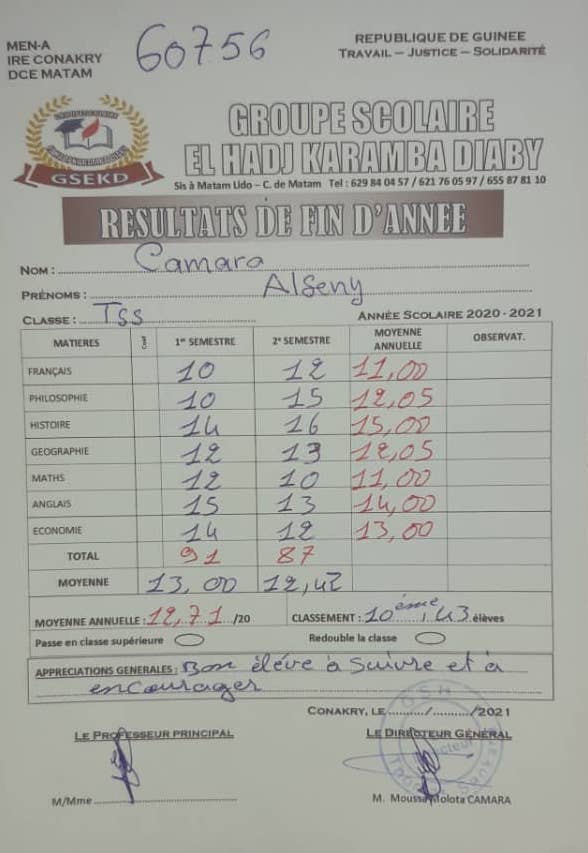 MEN-A
IRE CONAKRY
DCE MATAM
60756
REPUBLIQUE DE GUINEE
TRAVAIL – JUSTICE – SOLIDARITÉ
GSEKD
GROUPE SCOLAIRE
EL HADJ KARAMBA DIABY
Sis à Matam Lido – C. de Matam Tel : 629 84 04 57 / 621 76 05 97 / 655 87 81 10
RESULTATS DE FIN D'ANNEE
NOM : Camara
PRÉNOMS : Alseny
CLASSE : TSS ANNÉE SCOLAIRE 2020 - 2021
MATIERES 1er SEMESTRE 2e SEMESTRE MOYENNE ANNUELLE OBSERVAT.
FRANÇAIS 10 12 11,00
PHILOSOPHIE 10 15 12,05
HISTOIRE 14 16 15,00
GEOGRAPHIE 12 13 12,05
MATHS 12 10 11,00
ANGLAIS 15 13 14,00
ECONOMIE 14 12 13,00
TOTAL 91 87
MOYENNE 13,00 12,42
MOYENNE ANNUELLE : 12,71 /20 CLASSEMENT : 10ème / 43 élèves
Passe en classe supérieure Redouble la classe
APPRECIATIONS GENERALES : Bon élève à suivre et à
encourager
CONAKRY, LE ........../........../2021
LE PROFESSEUR PRINCIPAL LE DIRECTEUR GÉNÉRAL
M/Mme M. Moussa Molota CAMARA